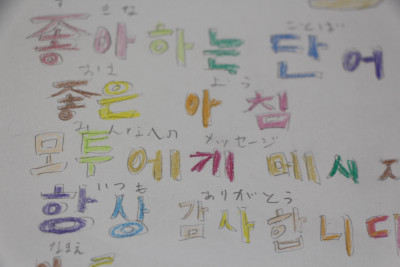 すきな ことば
좋아하는 단어
おは よう
좋은 아침
みんなへの メッセージ
모두에게 메시지
いつも ありがとう
항상 감사합니다
なまえ